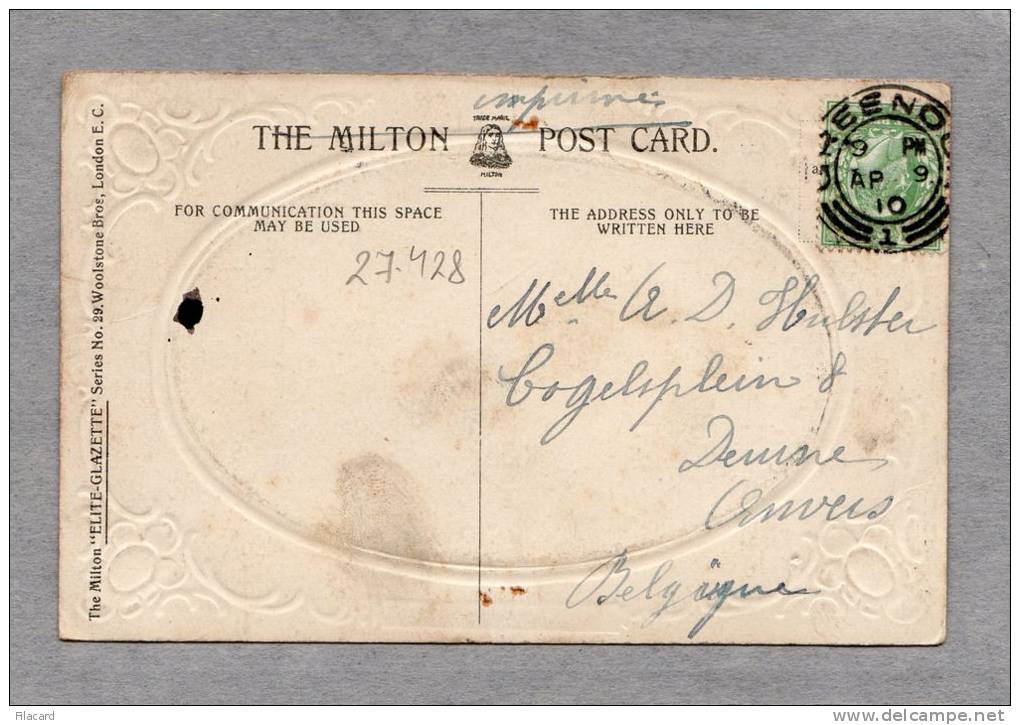 imprimé
THE MILTON POST CARD.
TRADE MARK
MILTON
FOR COMMUNICATION THIS SPACE
MAY BE USED
THE ADDRESS ONLY TO BE
WRITTEN HERE
27-428
9 PM
AP 9
10
1
Melle A. D. Hulster
Cogelsplein 8
Deurne
Anvers
Belgique
The Milton "ELITE-GLAZETTE" Series No. 29. Woolstone Bros, London E. C.
Filacard
delcampe.net